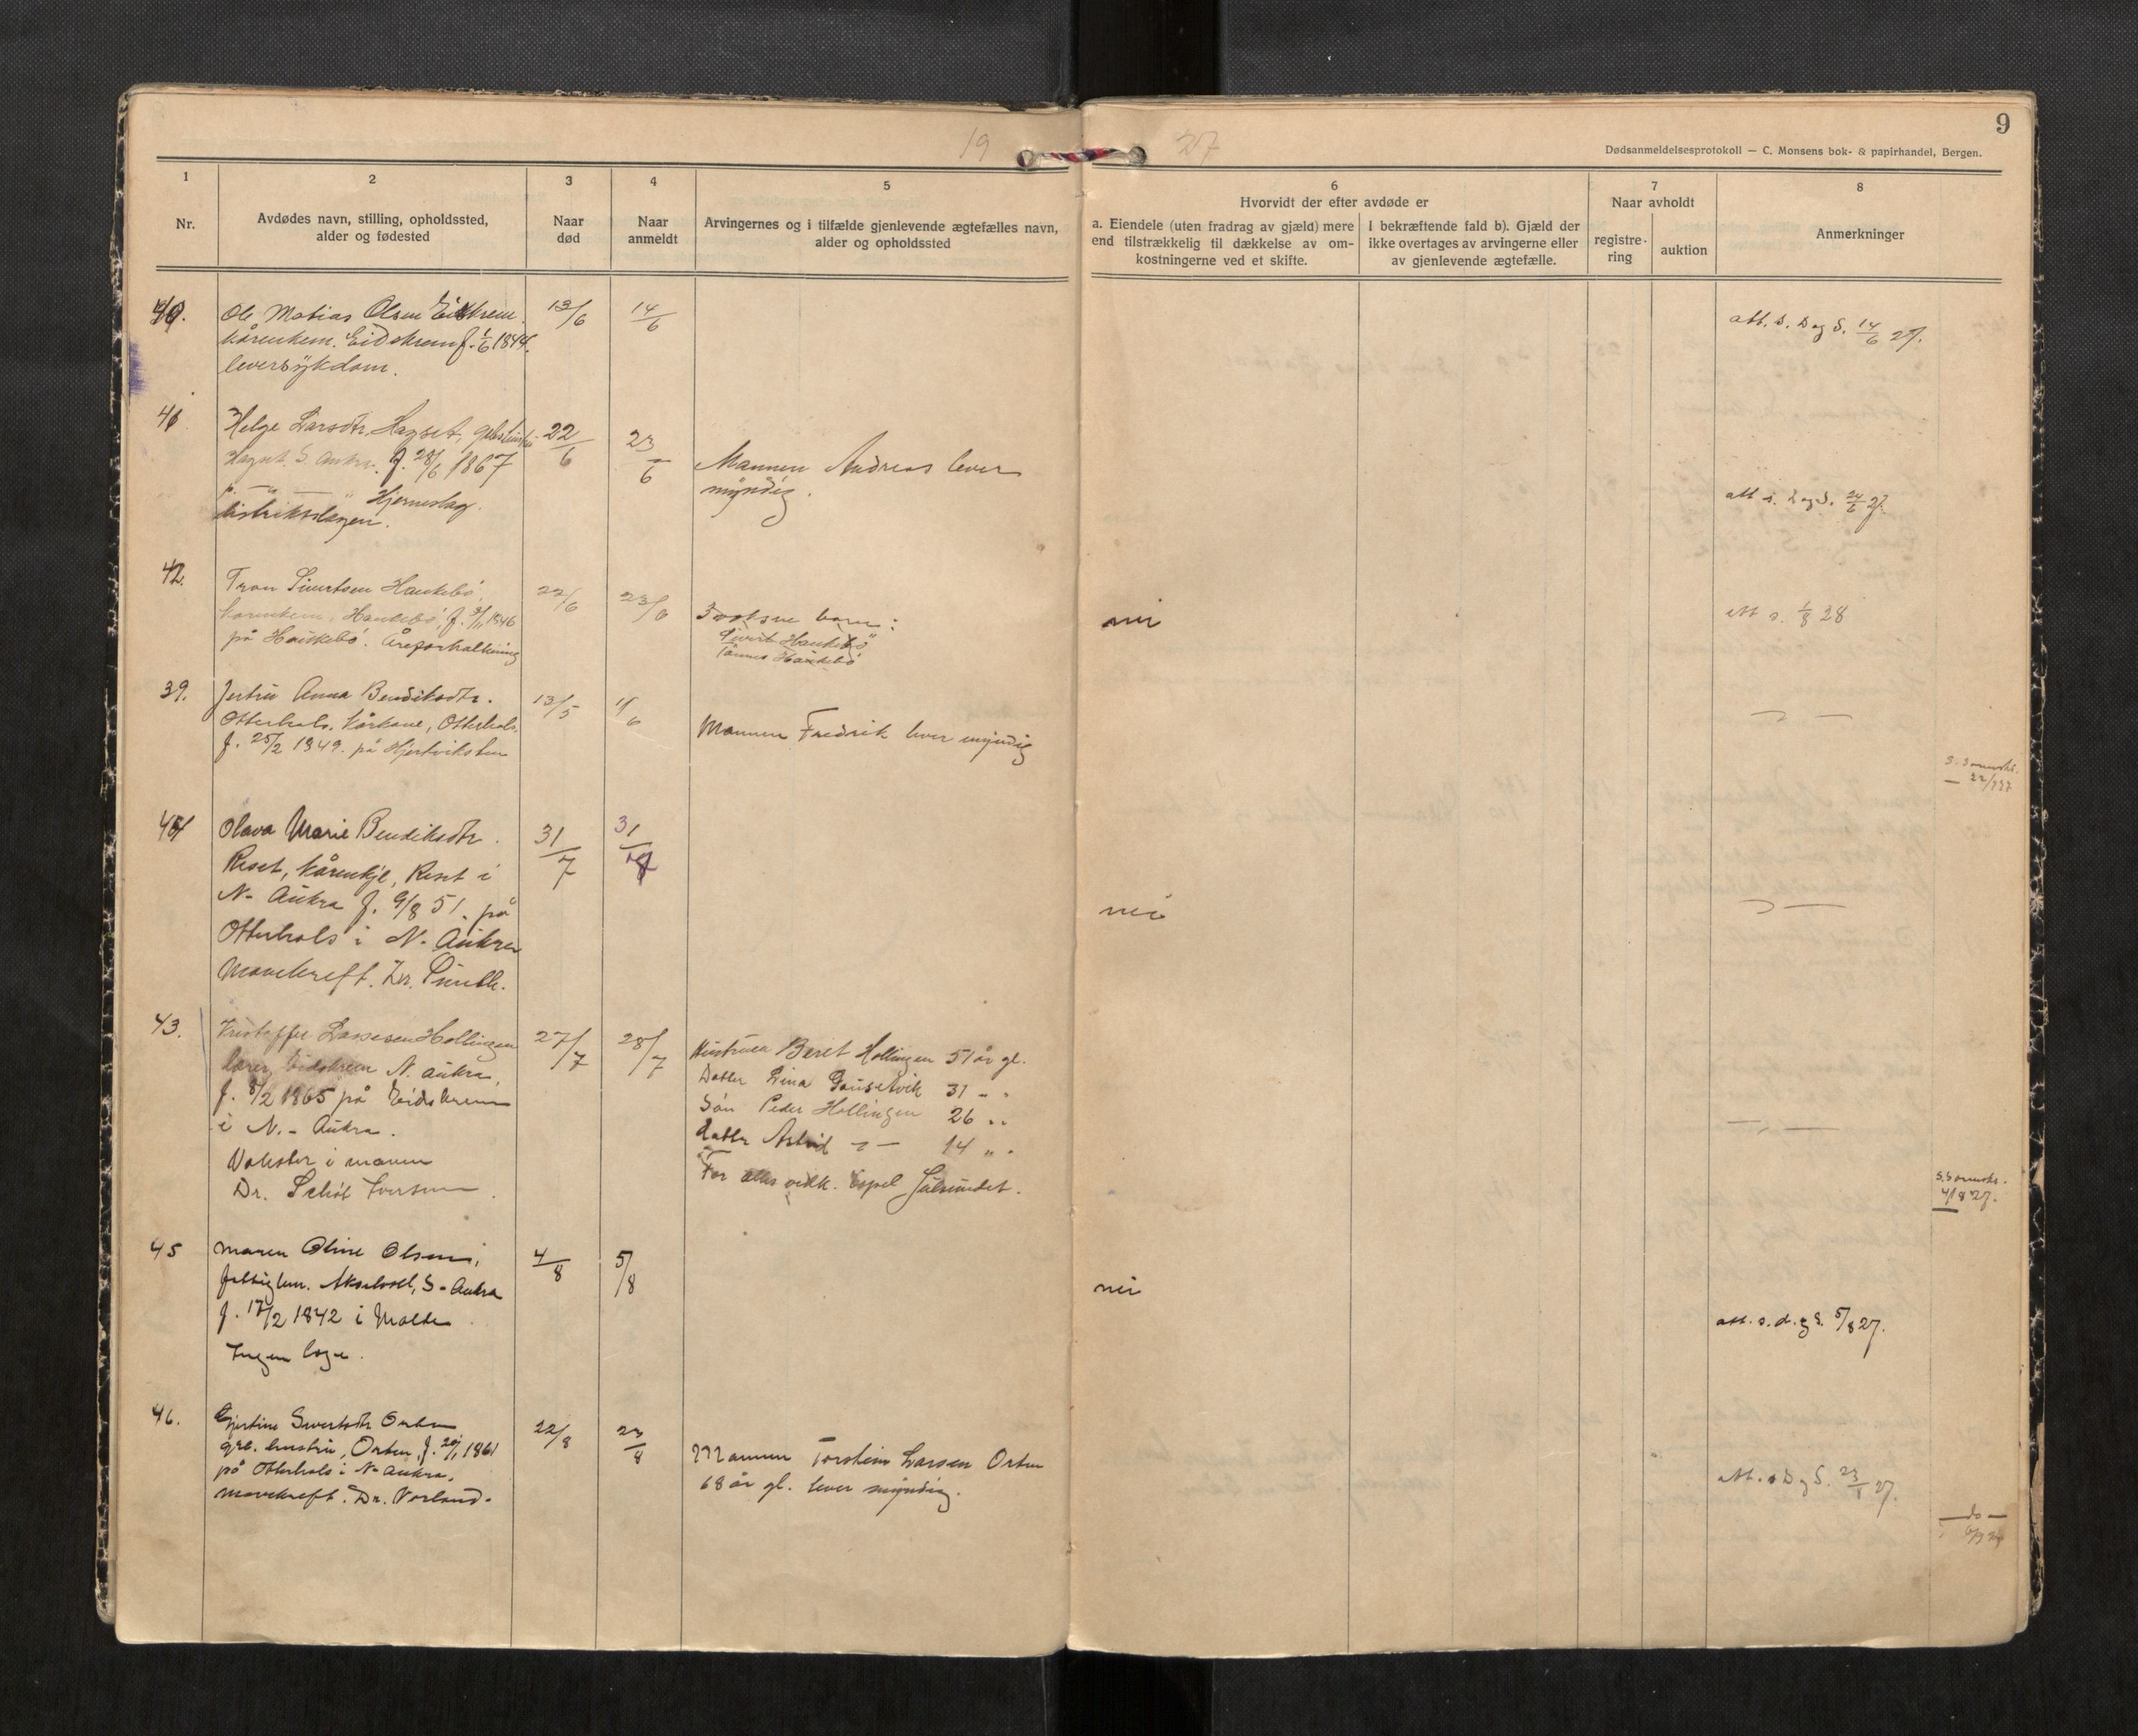 19 27
9
Dødsanmeldelsesprotokoll — C. Monsens bok- & papirhandel, Bergen.
1
2
3
4
5
6
7
8
Nr.
Avdødes navn, stilling, opholdssted,
alder og fødested
Naar
død
Naar
anmeldt
Arvingernes og i tilfælde gjenlevende ægtefælles navn,
alder og opholdssted
Hvorvidt der efter avdøde er
a. Eiendele (uten fradrag av gjæld) mere
end tilstrækkelig til dækkelse av om-
kostningerne ved et skifte.
I bekræftende fald b). Gjæld der
ikke overtages av arvingerne eller
av gjenlevende ægtefælle.
Naar avholdt
registre-
ring
auktion
Anmerkninger
40.
Ole Matias Olsen Eidskrem.
kårenkem. Eidskrem f. 1/6 1844.
leversykdom.
13/6
14/6
att. s. D og S. 14/6 27.
41
Helge Larsdtr. Hagset,
f. 28/6 1867
Hjerneslag.
distriktslægen.
22/6
23/6
Mannen Andreas lever
myndig.
att s. D og S. 24/6 27.
42.
Tron Sivertsen Haukebö,
kårenkem, Haukebö, f. 1846
på Haukebö. Åreforkalkning
22/6
23/6
Voksne barn:
Sivert Haukebö
Haukebö
nei
att s. 1/8 28
39.
Jertru Anna Bendiksdtr.
Otterhals, kårkone, Otterhals.
f. 25/2 1849. på
13/5
1/6
Mannen Fredrik lever myndig
44
Olava Marie Bendiksdtr.
Reset, kårenkje, Reset i
N. Aukra f. 9/8 51. på
Otterhals i N. Aukra
Mavekreft. Dr.
31/7
31/7
nei
43.
Kristoffer Lassesen Hollingen
lærer, Eidskrem N. Aukra,
f. 8/2 1865 på Eidskrem
i N. - Aukra.
Vokster i maven
Dr. Schöt Iversen.
27/7
28/7
Hustruen Beret Hollingen 51 år gl.
Datter Lina 31 " "
Sön Peder Hollingen 26 " "
datter Astrid — " — 14 " "
For alles vedk. Julsundet.
4/8 27.
45
Maren Oline Olsen,
fattiglem. Akselvoll, S - Aukra
f. 17/2 1842 i Molde
Ingen læge.
4/8
5/8
nei
att. s. d. og S. 5/8 27.
46.
Gjertine Sivertsdtr Orten
gift hustru, Orten, f. 1861
på Otterhals i N. Aukra.
Mavekreft. Dr. Norland.
22/8
23/8
Mannen Torstein Larsen Orten
68 år gl. lever myndig.
att. s D og S. 27.
— do —